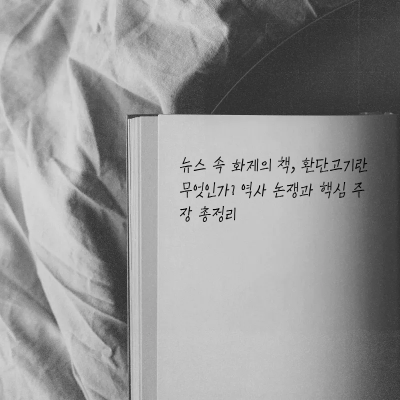 뉴스 속 화제의 책, 환단고기란
무엇인가? 역사 논쟁과 핵심 주
장 총정리